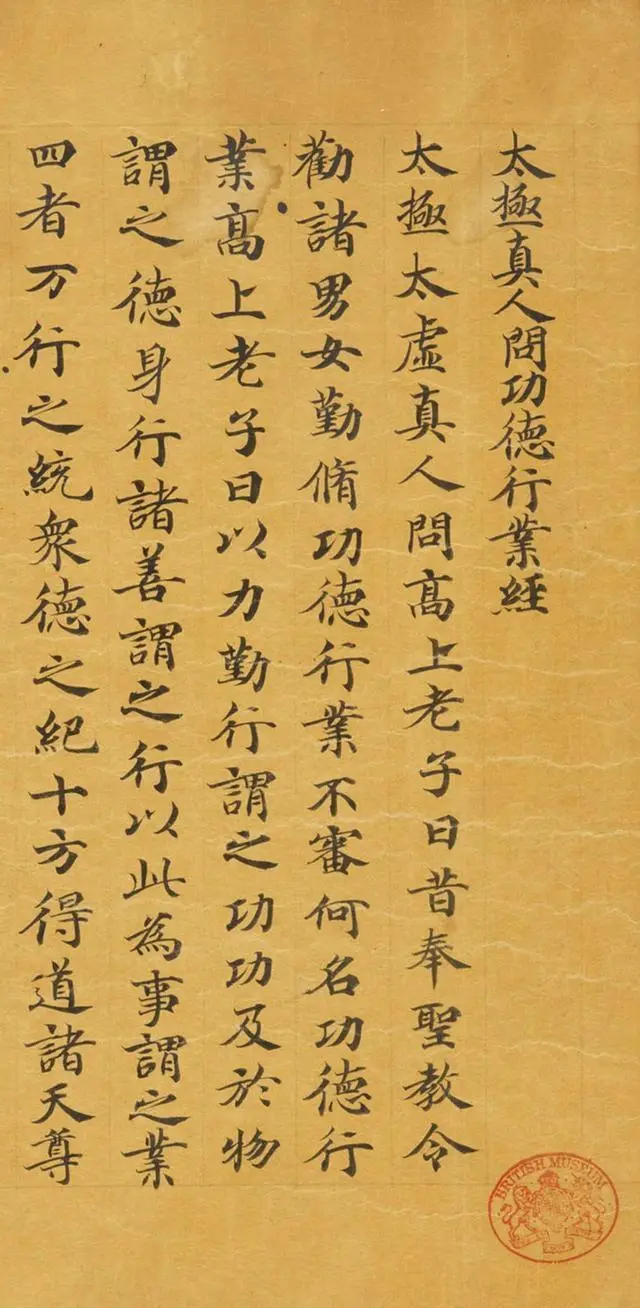 太極真人問功德行業經
太極太虛真人問高上老子曰昔奉聖教令
勸諸男女勤脩功德行業不審何名功德行
業高上老子曰以力勤行謂之功功及於物
謂之德身行諸善謂之行以此為事謂之業
四者万行之統眾德之紀十方得道諸天尊
BRITISH MUSEUM